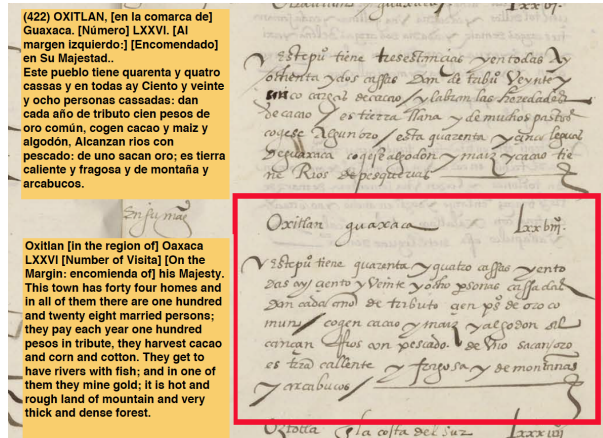 (422) OXITLAN, [en la comarca de]
Guaxaca. [Número] LXXVI. [Al
margen izquierdo:] [Encomendado]
en Su Majestad..
Este pueblo tiene quarenta y quatro
cassas y en todas ay Ciento y veinte
y ocho personas cassadas: dan
cada año de tributo cien pesos de
oro común, cogen cacao y maiz y
algodón, Alcanzan rios con
pescado: de uno sacan oro; es tierra
caliente y fragosa y de montaña y
arcabucos.
Oxitlan [in the region of] Oaxaca
LXXVI [Number of Visita] [On the
Margin: encomienda of] his Majesty.
This town has forty four homes and
in all of them there are one hundred
and twenty eight married persons;
they pay each year one hundred
pesos in tribute, they harvest cacao
and corn and cotton. They get to
have rivers with fish; and in one of
them they mine gold; it is hot and
rough land of mountain and very
thick and dense forest.
Estepu͞ tiene tres estancias y en todas ay
ochenta y dos cassas Dan de tabu͞ Veynte y
cinco cargas de cacao / y labran las heredades
de cacao / es tierra llana y de muchos pastos
cogese Algun oro / esta quarenta y cinco leguas
de guaxaca cogese algodon y maiz y cacao tie
ne Rios de pesquerias
En su mag
Oxitlan guaxaca lxxbi͞
Este pu͞ tiene quarenta y quatro cassas y en to
das ay ciento y Veinte y ocho psonas cassadas
Dan cada año de tributo çien ps de oro co
mun / cogen cacao y maiz y algodon Al
cançan Rios con pescado de Vno sacan oro
es trra caliente y fragosa y de montañas
y arcabucos
la costa del sur